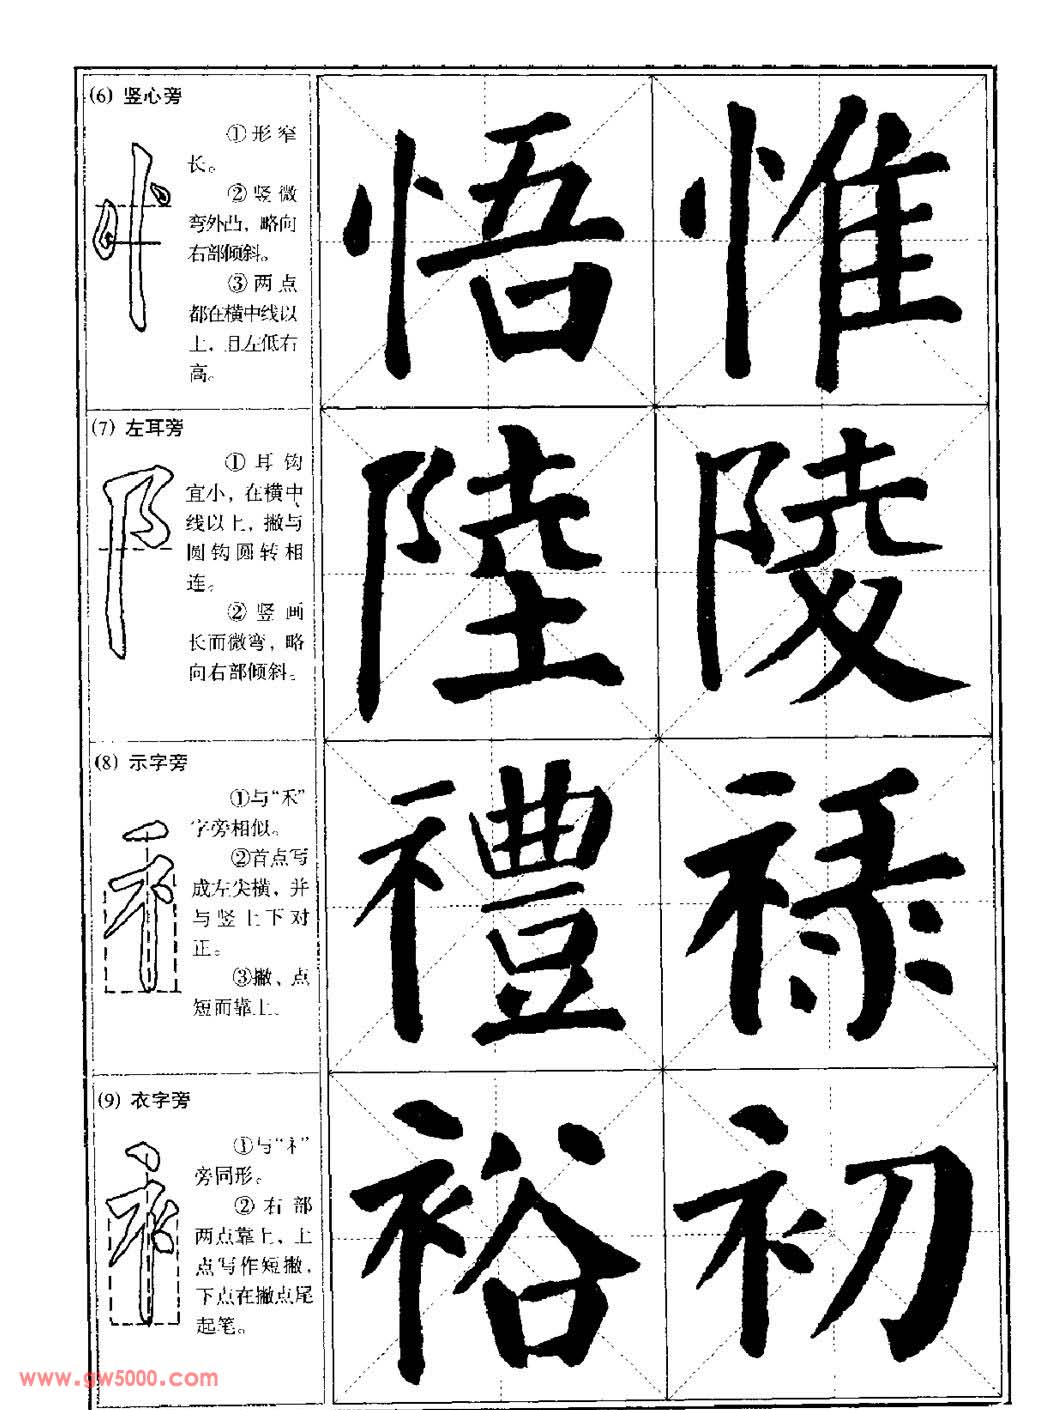 (6) 竖心旁
①形窄
长。
②竖微
弯外凸，略向
右部倾斜。
③两点
都在横中线以
上，且左低右
高。
悟 惟
(7) 左耳旁
①耳钩
宜小，在横中
线以上，撇与
圆钩圆转相
连。
②竖画
长而微弯，略
向右部倾斜。
陸 陵
(8) 示字旁
①与“禾”
字旁相似。
②首点写
成左尖横，并
与竖上下对
正。
③撇、点
短而靠上。
禮 禄
(9) 衣字旁
①与“礻”
旁同形。
②右部
两点靠上，上
点写作短撇，
下点在撇点尾
起笔。
裕 初
www.gw5000.com